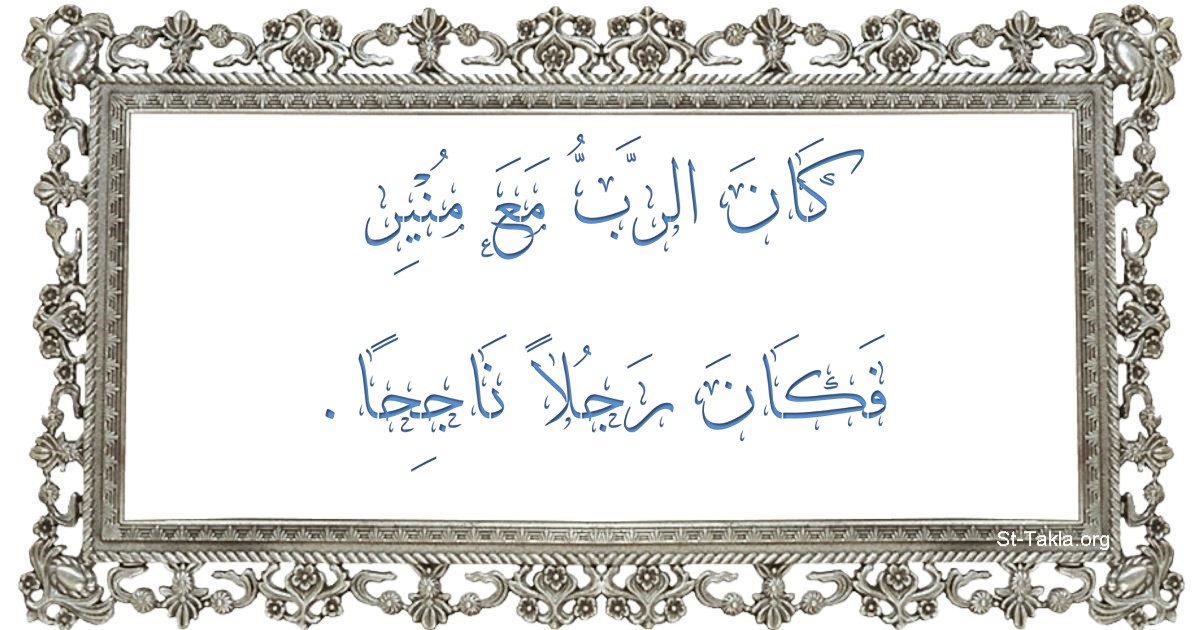 كَانَ الرَّبُّ مَعَ مُنْيِرِ
فَكَانَ رَجُلاً نَاجِحًا .
St-Takla.org